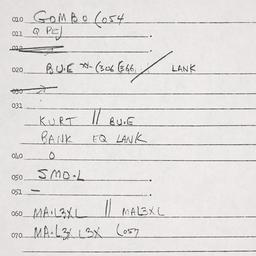 010 GOMBO (054
011 Q PEJ
012
020 BU.E ** (306 (366. / LANK
030
031
KURT || BU.E
BANK EQ LANK
040 O
050 SMO.L
051 –
060 MA.L3XL || MAL3XL
070 MA.L3X L3X (057